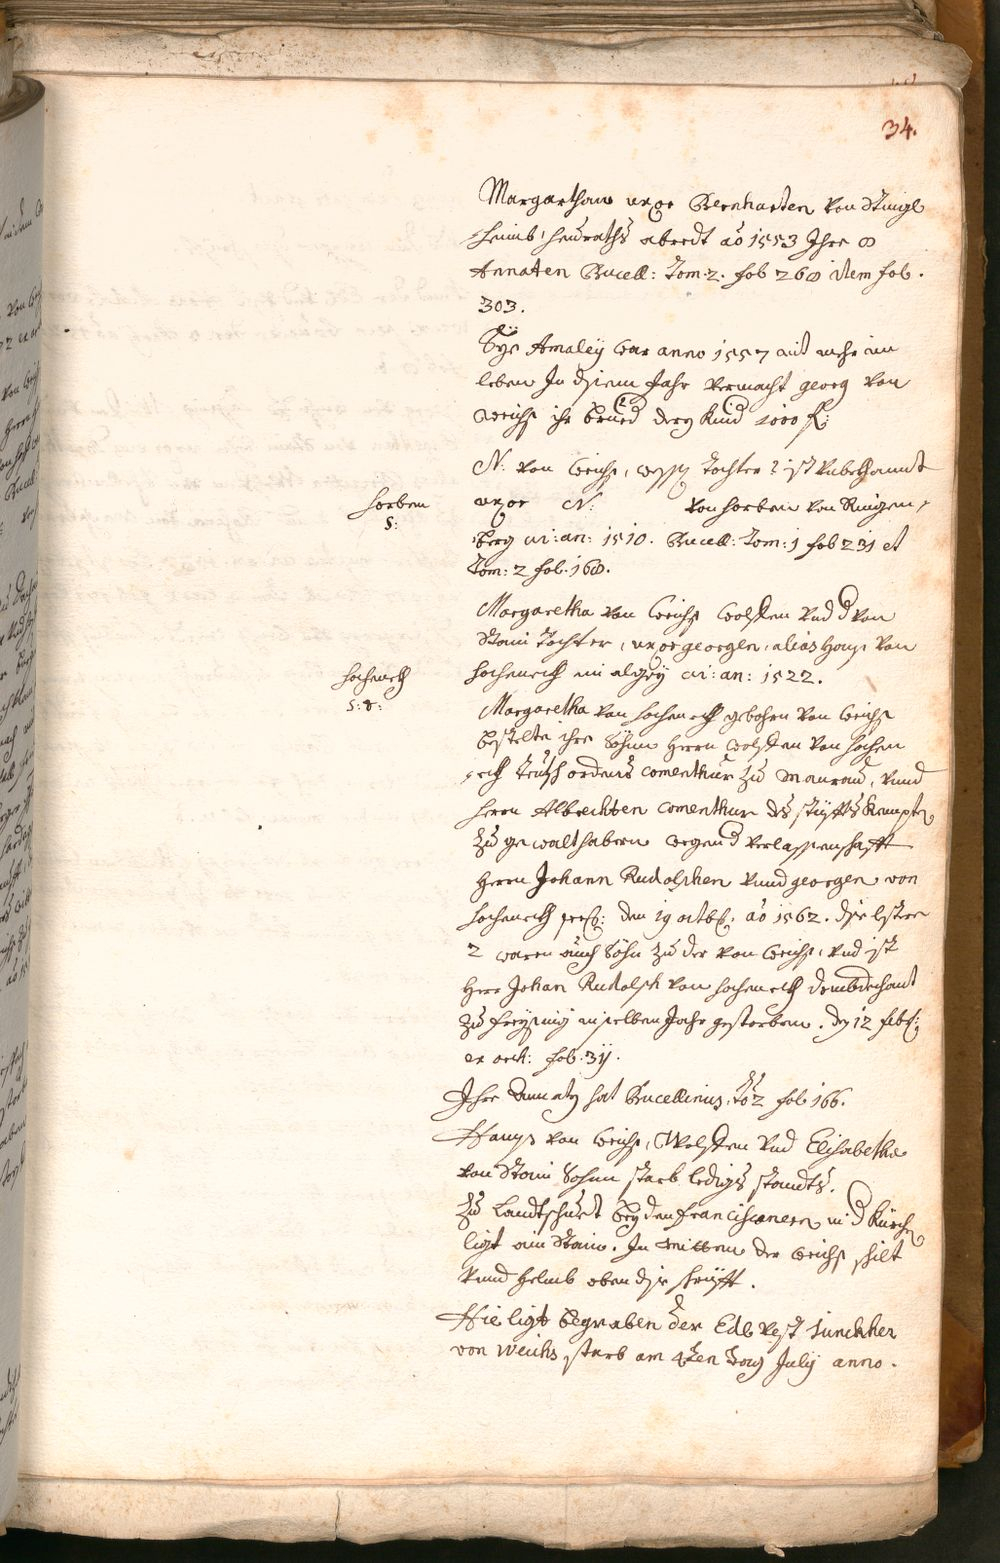 34.
Margarethaw uxor Bernharten von Stingl
heimb, heuraths abredt ao 1553 Ihre 8
Annaten Bucell: Tom: 2. fol 260 item fol.
303.
Amaleÿ war anno 1557 nit mehr im
leben In disem Jahr vermacht georg von
weichs ihr Kind 1000 fl:
N: von Weichs, Tochter? ist unbekhannt
horben
S:
uxor N: von horben von Ringen,
berg vi: an: 1510. Bucell: Tom: 1 fol 231 et
Tom: 2 fol. 160.
Margaretha von Weichs Wolffen und d von
Stain Tochter, uxor georgen, alias von
hochenech
S: 8:
hocheneckh vi: an: 1522.
Margaretha von hocheneckh gebohrn von Weichs
bestelte ihre Söhne Herrn Wolffen von hochen
eckh Teutsch ordens comenthur zu, vnnd
herrn Albrechten comenthur des stüffts Kempten
zu gewalthabern wegen d verlassenschafft
Herrn Johann Rudolphen vnnd georgen von
hocheneckh den 19 octob: ao 1562. dise
2 waren auch Söhn zu der von Weichs, vnd ist
Herr Johan Rudolph von hocheneckh dombdechant
zu Freÿsing in selben Jahr gestorben. den 12 febr:
ex arch: fol. 31.
Ihre hat Bucellinus, To 2 fol 166.
Hanns von Weichs, Wolffen vnd Elisabetha
von Stain Sohn starb ledigs standts.
Zu Landtshuet beÿ den Franciscanern in d Kürchen
ligt ein Stain. In mitten der Weichs schilt
vnnd Helmb oben dise schrüfft.
Hie ligt begraben der Edl vest Junckher
von Weichs starb am 4ten tag Julÿ anno.